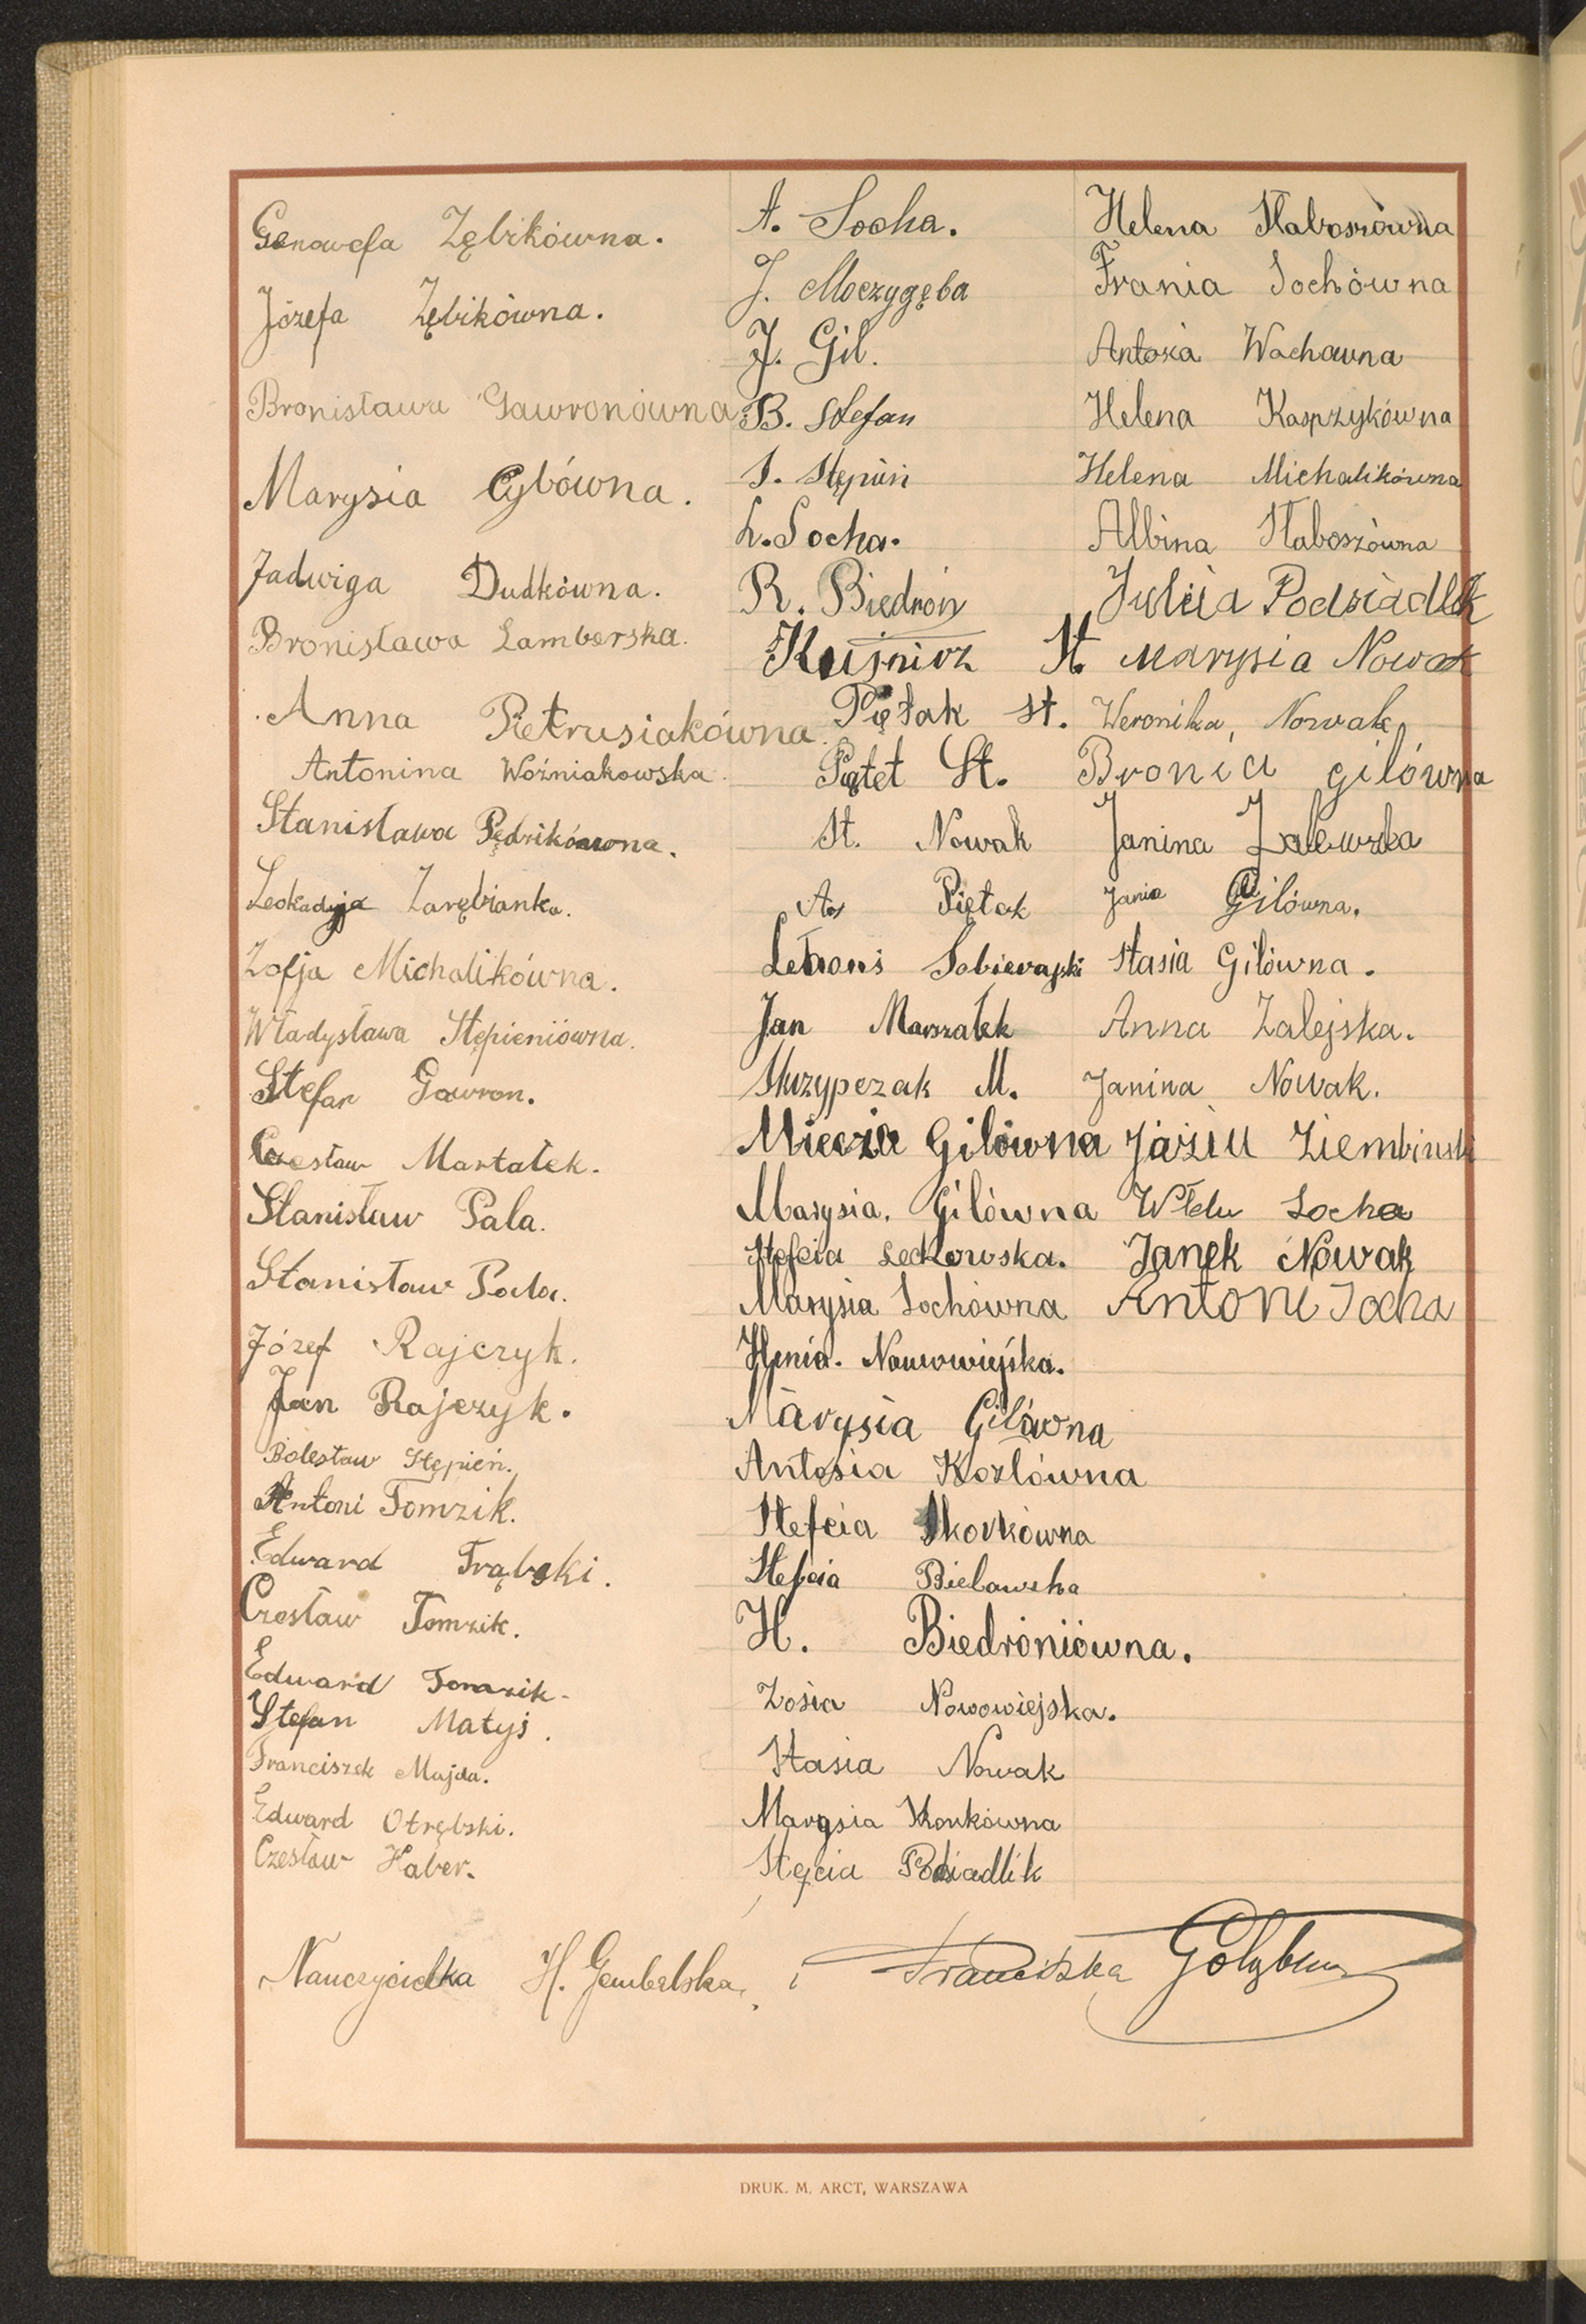 Genowefa Zębikówna.
Józefa Zębikówna.
Bronisława Gawronówna
Marysia Cybówna.
Jadwiga Dudkówna.
Bronisława Lamberska.
Anna Pietrusiakówna.
Antonina Woźniakowska.
Stanisława Pędzikówna.
Leokadyja Zarębianka.
Zofja Michalikówna.
Władysława Stępieniówna.
Stefan Gawron.
Czesław Martałek.
Stanisław Pala.
Stanisław Pala.
Józef Rajczyk.
Jan Rajczyk.
Bolesław Stępień.
Antoni Tomzik.
Edward Trąbski.
Czesław Tomzik.
Edward Tomzik.
Stefan Matyś.
Franciszek Majda.
Edward Otrębski.
Czesław Haber.
A. Socha.
J. Moczygęba
J. Gil.
B. Stefan
S. Stępiń
L. Socha.
R. Biedroń
Kuśnierz St.
Piętak St.
Piątet St.
St. Nowak
Piętak
Sobierajski
Jan Marszałek
Skrzypczak M.
Miecia Gilówna
Marysia. Gilówna
Stefcia Leckowska.
Marysia Sochówna
Henia. Nowowiejska.
Marysia Gilówna
Antosia Kozlówna
Stefcia Skorkówna
Stefcia Bielawska
H. Biedroniówna.
Zosia Nowowiejska.
Stasia Nowak
Marysia Skonkówna
Stefcia Podsiadlik
Helena Słaboszówna
Frania Sochówna
Antosia Wochowna
Helena Kasprzykówna
Helena Michalikówna
Albina Słaboszówna
Julcia Podsiadlik
Marysia Nowak
Weronika, Nowak,
Bronia gilówna
Janina Zalewska
Jania Gilówna.
Stasia Gilówna.
Anna Zalejska.
Janina Nowak.
Józiu Ziembinski
Włdu Socha
Janek Nowak
Antoni Socha
Nauczycielka H. Gembalska, i Franciszka
DRUK. M. ARCT, WARSZAWA